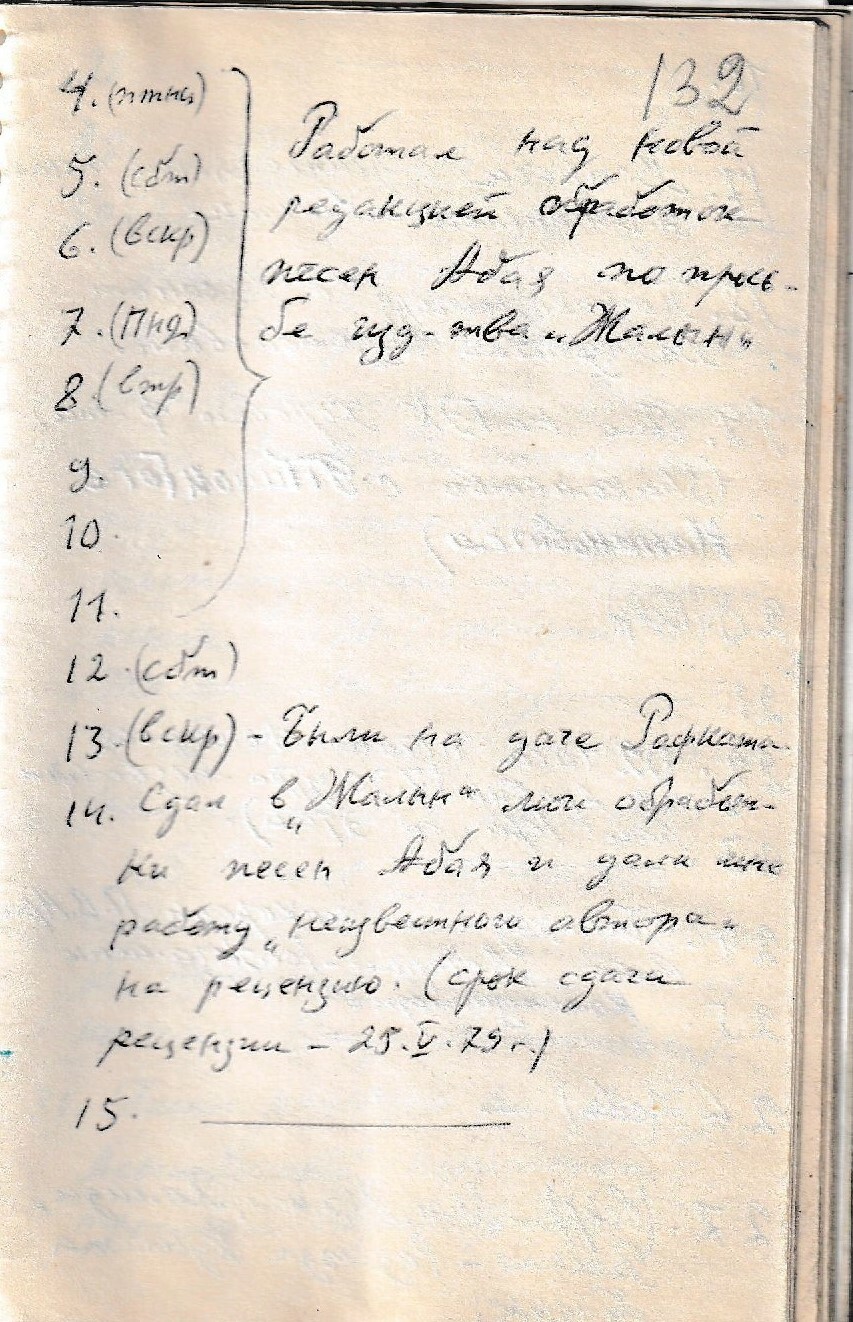 132
4. (птнц)
5. (сбт)
6. (вскр)
7. (Пнд)
8 (втр)
9.
10.
11.
Работал над новой
редакцией обработок
песен Абая по прось-
бе изд-тва „Жалын"
12. (сбт)
13. (вскр) - Были на даче Рафката
14. Сдал в „Жалын" мои обработ-
ки песен Абая и дали мне
работу „неизвестного автора"
на рецензию. (срок сдачи
рецензии - 25.V.79 г.)
15.